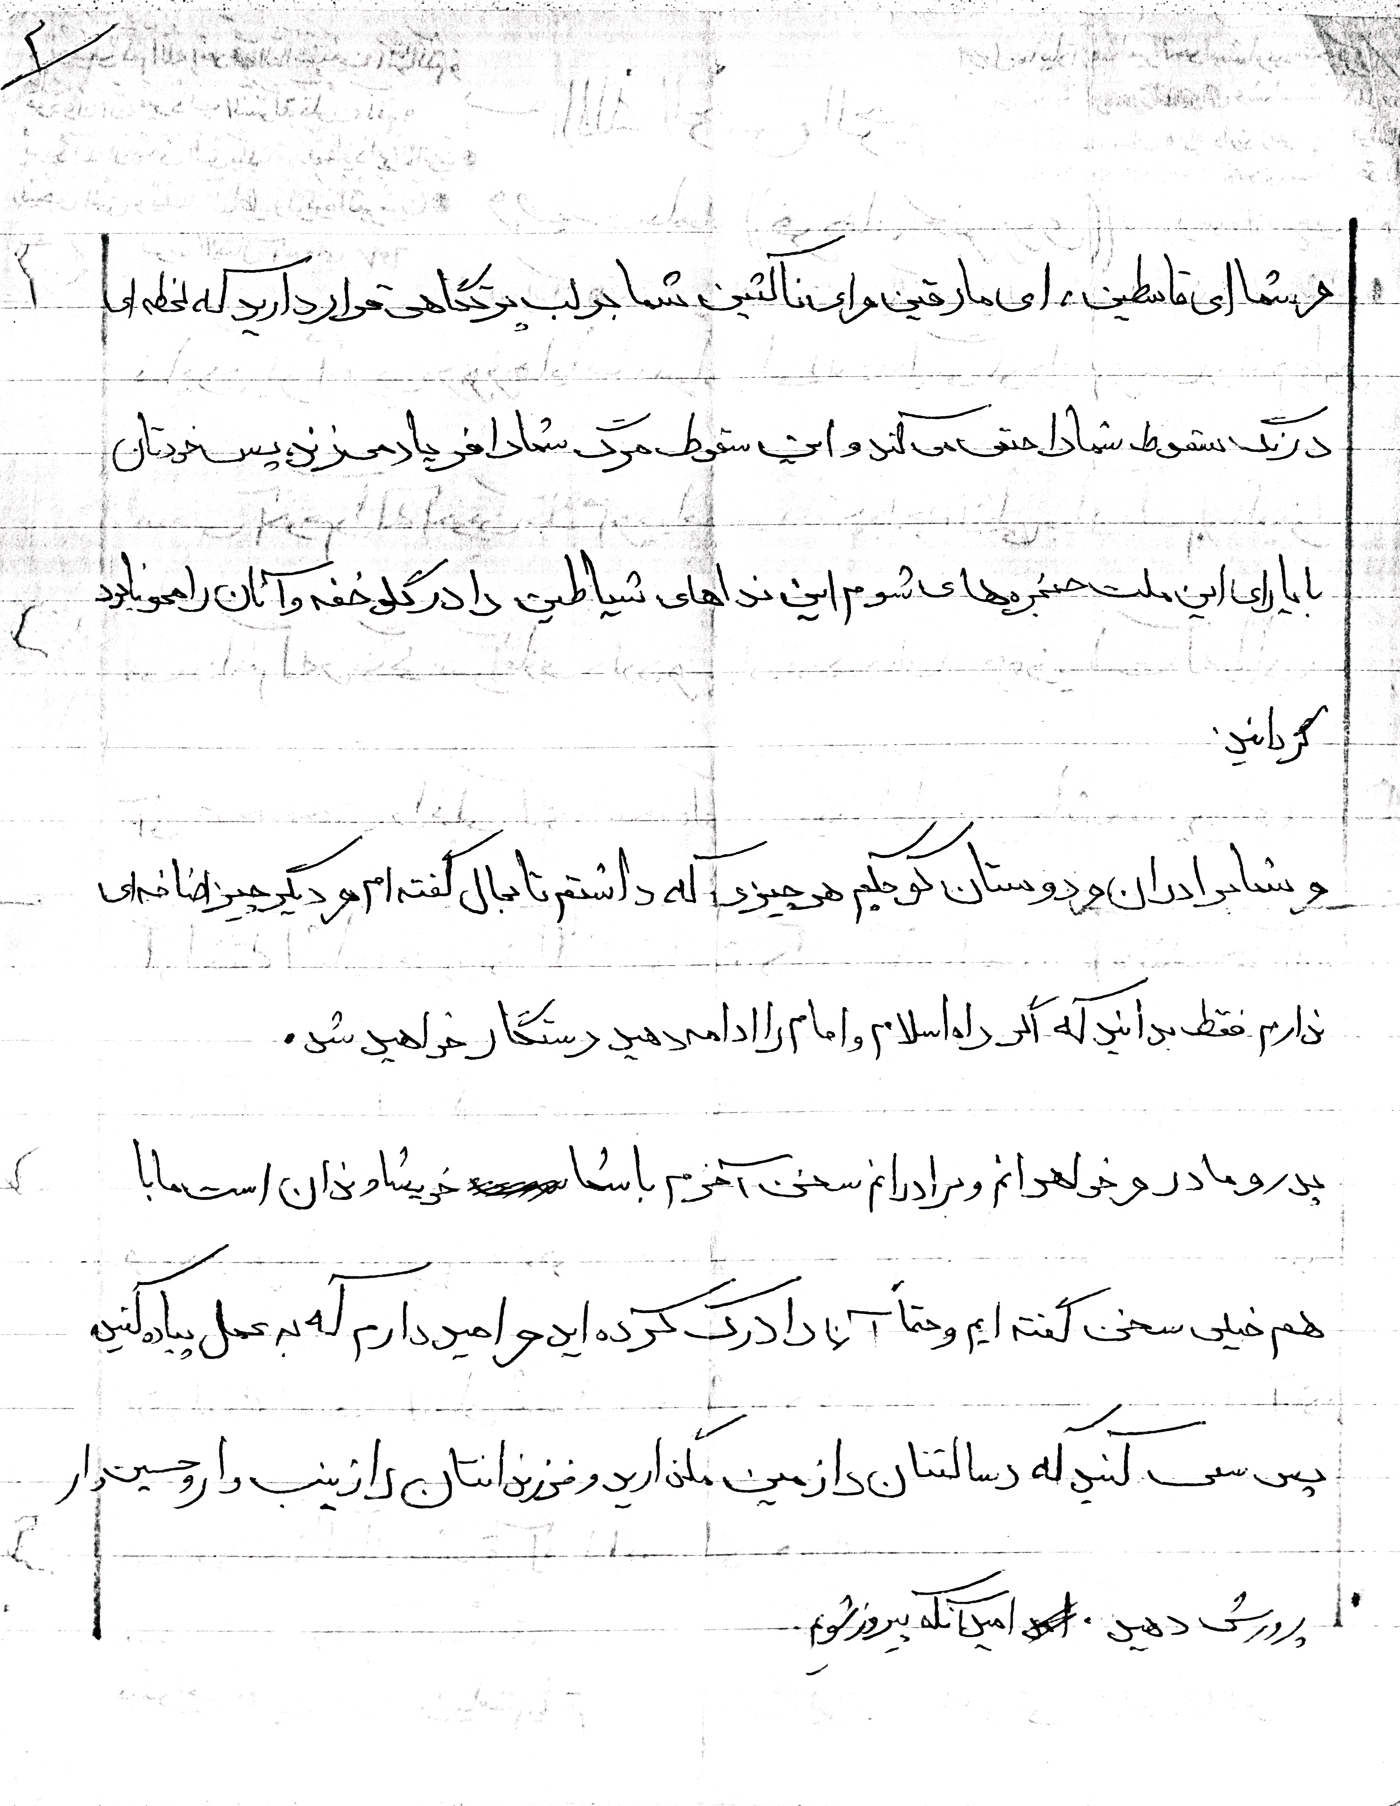 ۲
و شما ای قاسطین، ای مارقین و ای ناکثین شما بر لب پرتگاهی قرار دارید که لحظه ای
درنگ سقوط شما را حتمی می کند و این سقوط مرگ شما را فریاد می زند پس خودتان
با یارای این ملت حنجره های شوم این نداهای شیاطین را در گلو خفه و آنان را محو نابود
گردانید.
و شما برادران و دوستان کوچکم هر چیزی که داشتم تا بحال گفته ام و دیگر چیز اضافه ای
ندارم فقط بدانید که اگر راه اسلام و امام را ادامه دهید رستگار خواهید شد.
پدر و مادر و خواهرانم و برادرانم سخن آخرم با شما خویشاوندان است ما با
هم خیلی سخن گفته ایم و حتماً آنها را درک کرده اید و امید دارم که به عمل پیاده کنید
پس سعی کنید که رسالتتان را زمین مگذارید و فرزندانتان را زینب وار و حسین وار
پرورش دهید. امید آنکه پیروز شویم